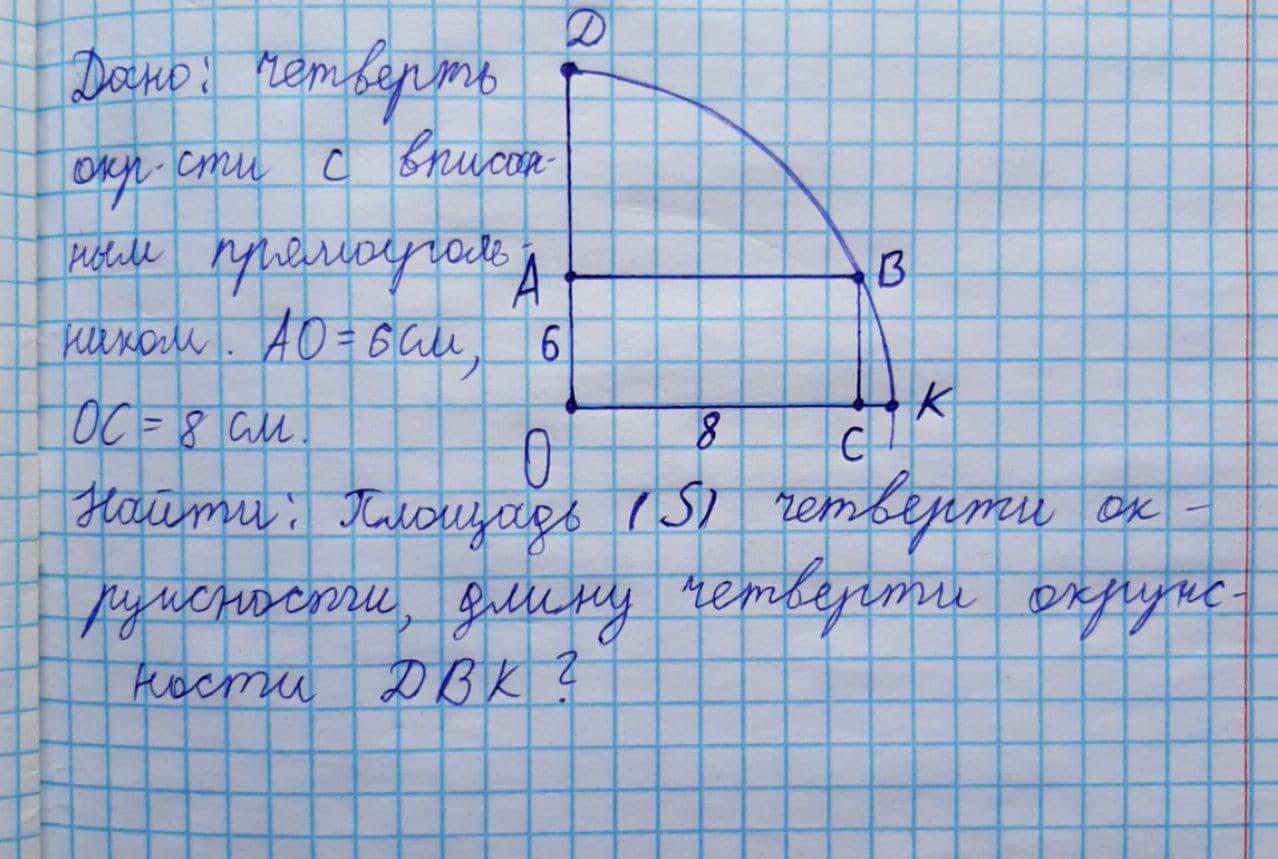 Дано: четверть
окр-сти с вписан-
ным прямоуголь-
ником. АО = 6 см,
ОС = 8 см.
Д
А
В
6
О
8
С
К
Найти: Площадь (S) четверти ок-
ружности, длину четверти окруж-
ности ДВК?